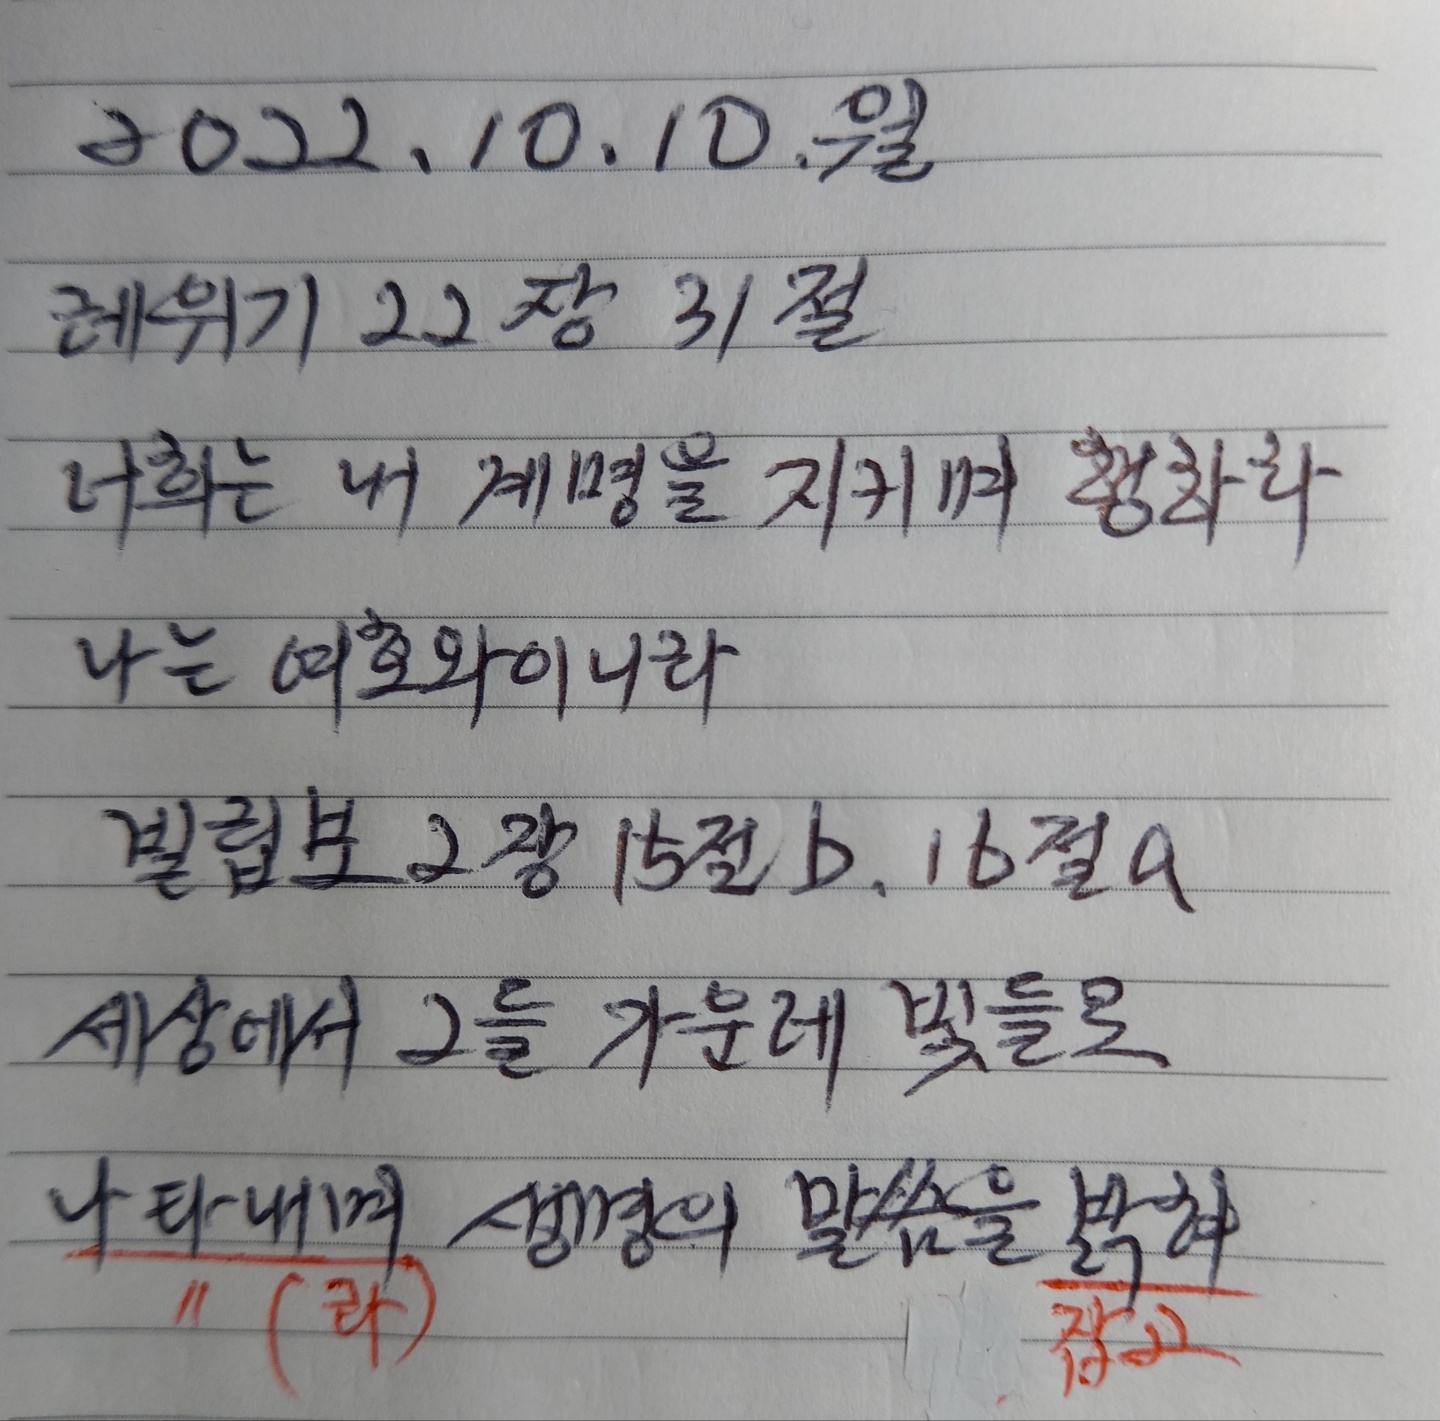 2022. 10. 10. 월
레위기 22장 31절
너희는 내 계명을 지키며 행하라
나는 여호와이니라
빌립보 2장 15절 b. 16절 a
세상에서 그들 가운데 빛들로
나타내며 생명의 말씀을 밝혀
〃 (라) 잡고